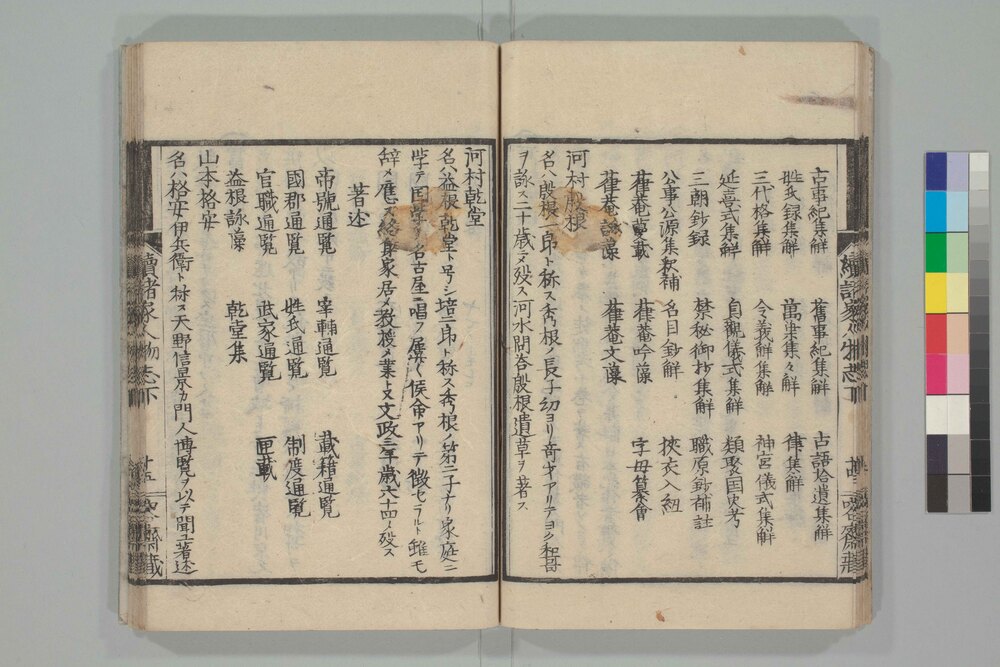 古事紀集解 舊事紀集解 古語拾遺集解
姓氏録集解 萬葉集々解 律集解
三代格集解 令義解集解 神宮儀式集解
延喜式集解 貞観儀式集解 類聚国史考
三朝鈔録 禁秘御抄集解 職原鈔補註
公事公源集釈補 名目鈔解 挾衣入紐
葎菴叢載 葎菴吟藻 字母纂會
葎菴詠藻 葎菴文藻
河村殷根
名ハ殷根一郎ト称ス秀根ノ長子幼ヨリ奇才アリテヨク和哥
ヲ詠ス二十歳ニメ殁ス河水問答殷根遺草ヲ著ス
續諸家人物志下
河村乾堂
名ハ益根乾堂ト号シ培二郎ト称ス秀根ノ第二子ナリ家庭ニ
学テ国学ヲ名古屋ニ唱フ屢侯命アリテ徴セラルト雖モ
辞メ應セス終身家居メ教授ヲ業トス文政二年歳六十四ノ殁ス
著述
帝號通覧 宰輔通覧 載籍通覧
國郡通覧 姓氏通覧 制度通覧
官職通覧 武家通覧 匣載
益根詠藻 乾堂集
山本格安
名ハ格安伊兵衛ト称ス天野信景カ門人博覧ヲ以テ聞ユ著述
續諸家人物志下
廿五